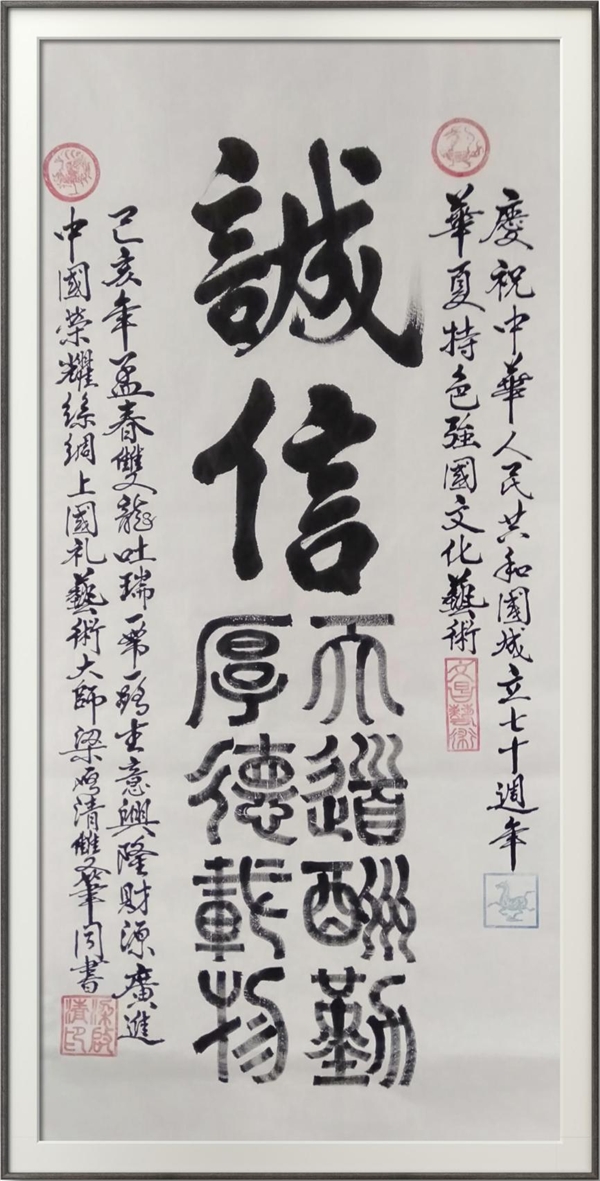 慶祝中華人民共和國成立七十週年
華夏特色強國文化藝術
文昌藝術
誠信
天道酬勤
厚德載物
己亥年孟春雙龍吐瑞一帶一路生意興隆財源廣進
中國榮耀絲綢上國礼藝術大師梁啟清雙筆同書
梁啟清印